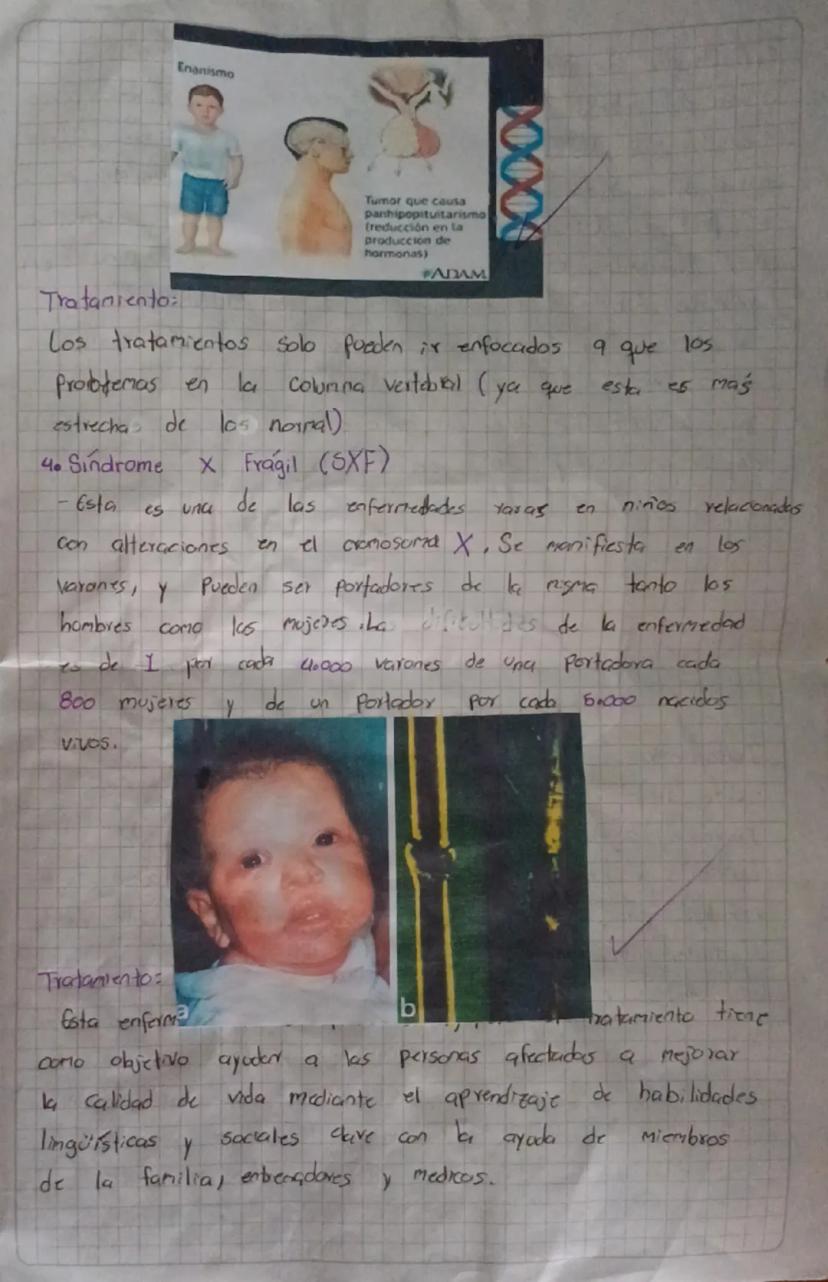 Enanismo
Tumor que causa
panhipopituitarismo
(reducción en la
producción de
hormonas)
ADAM
Tratamiento:
Los tratamientos solo pueden ir enfocados a que los
problemas en la columna vertebral (ya que esta es más
estrecha de los normal)
4. Síndrome X Frágil (SXF)
- Esta es una de las enfermedades raras en niños relacionadas
con alteraciones en el cromosoma X. Se manifiesta en los
varones, y pueden ser portadores de la misma tanto los
hombres como las mujeres. La de la enfermedad
es de 1 por cada 4.000 varones de una portadora cada
800 mujeres y de un portador por cada 5.000 nacidos
vivos.
a
b
Tratamiento:
Esta tratamiento tiene
como objetivo ayudar a las personas afectadas a mejorar
la calidad de vida mediante el aprendizaje de habilidades
lingüísticas y sociales clave con la ayuda de miembros
de la familia, y medicos.